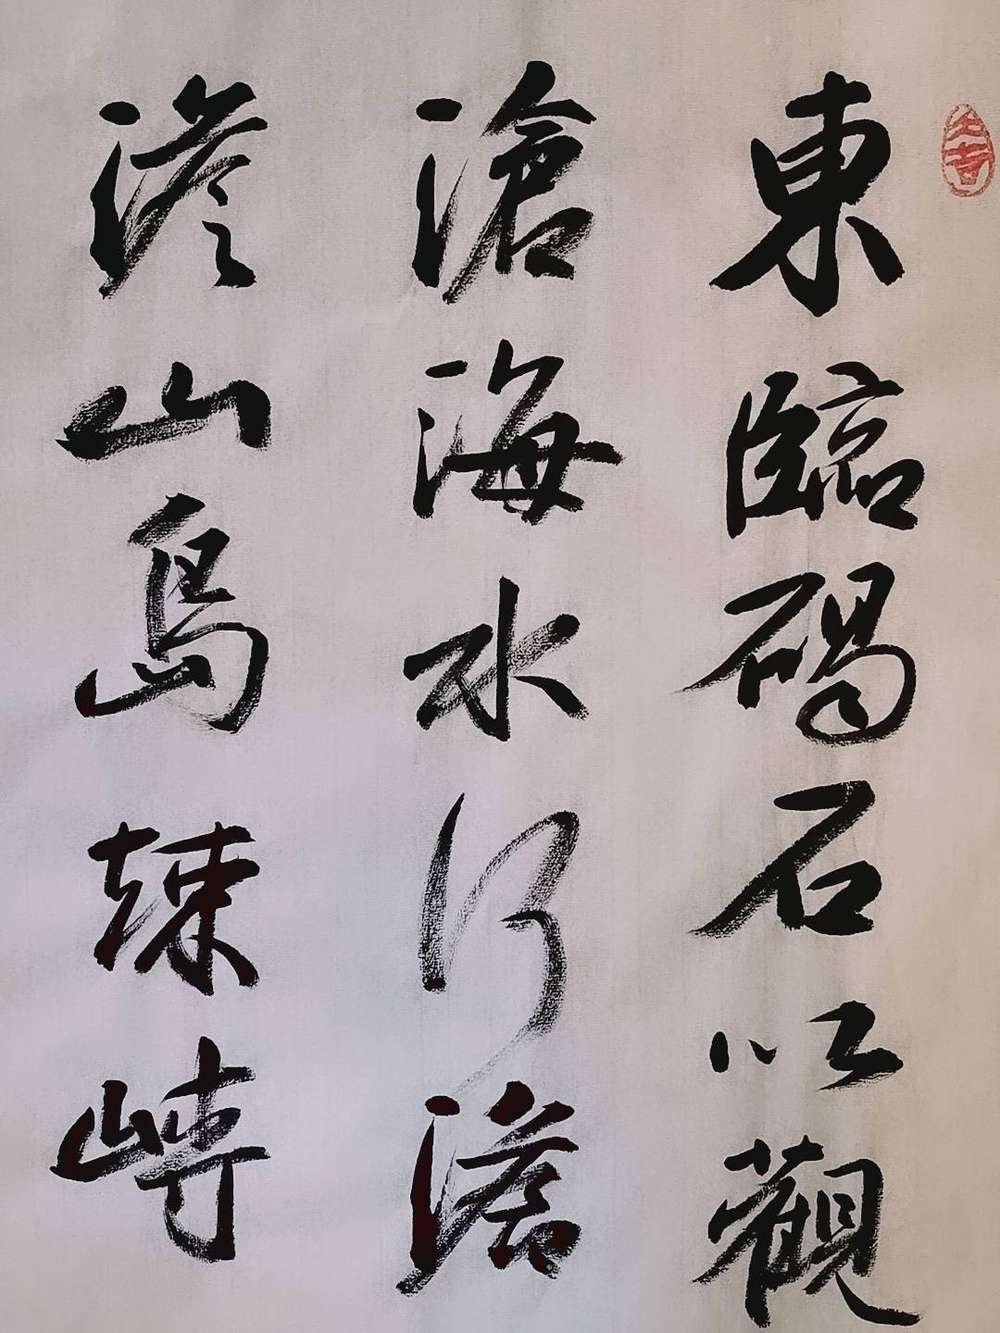 大吉
東臨碣石以觀
滄海水何澹
澹山島竦峙